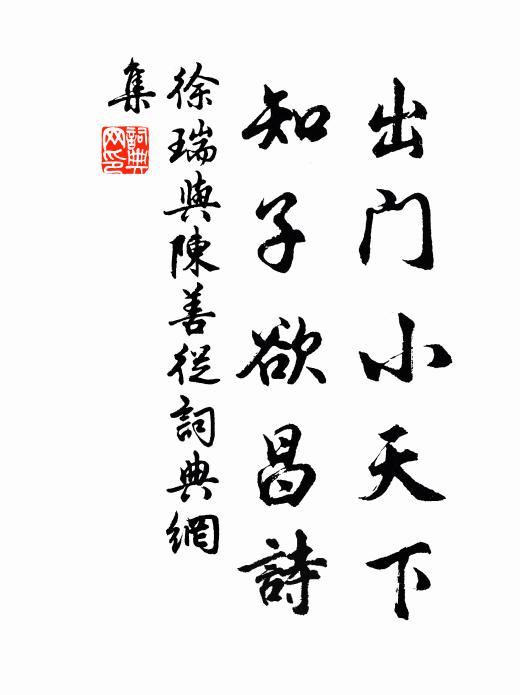 出門小天下
知子欲昌詩
徐瑞與陳善從詞典網
集
詞典
网印